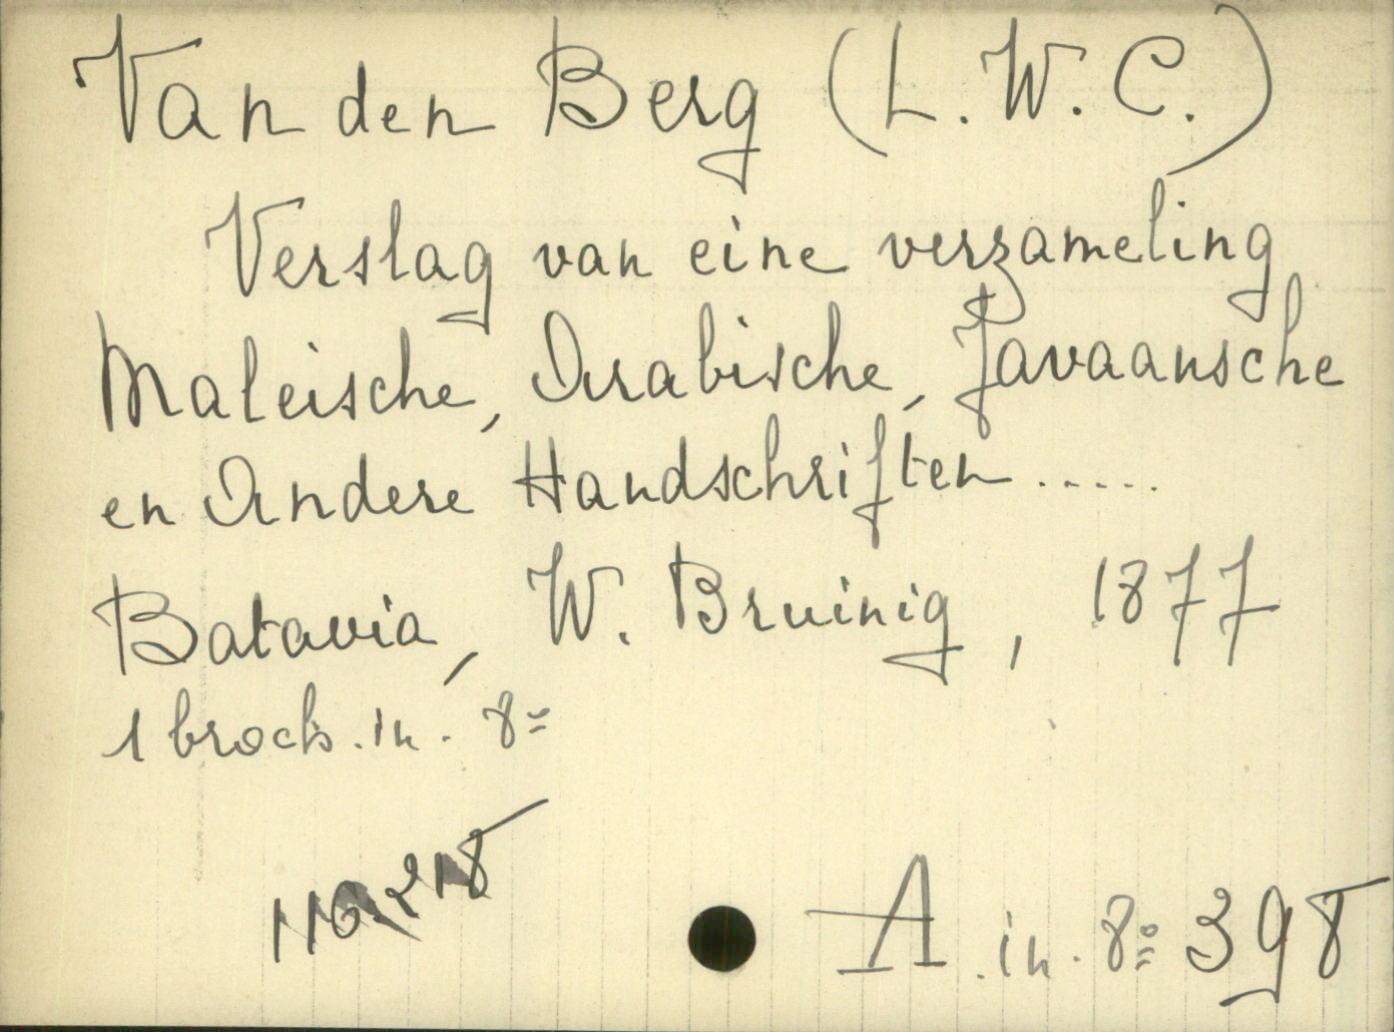 Van den Berg (L. W. C.)
Verslag van eine verzameling
Maleische, Arabische, Javaansche
en Andere Handschriften.....
Batavia, W. Bruinig, 1877
1 broch. in. 8º
116.218
A. in. 8º 398